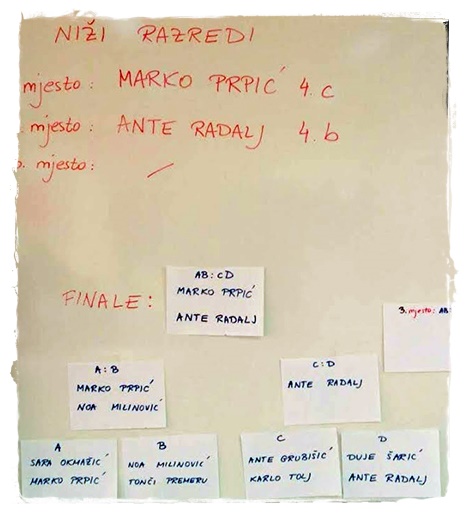 NIŽI RAZREDI
mjesto: MARKO PRPIĆ 4. c
. mjesto: ANTE RADALJ 4. b
. mjesto: /
FINALE:
AB:CD
MARKO PRPIĆ
ANTE RADALJ
3. mjesto: AB:
A:B
MARKO PRPIĆ
NOA MILINOVIĆ
C:D
ANTE RADALJ
A
SARA OKMAŽIĆ
MARKO PRPIĆ
B
NOA MILINOVIĆ
TONČI PREMERU
C
ANTE GRUBIŠIĆ
KARLO TOLJ
D
DUJE ŠARIĆ
ANTE RADALJ